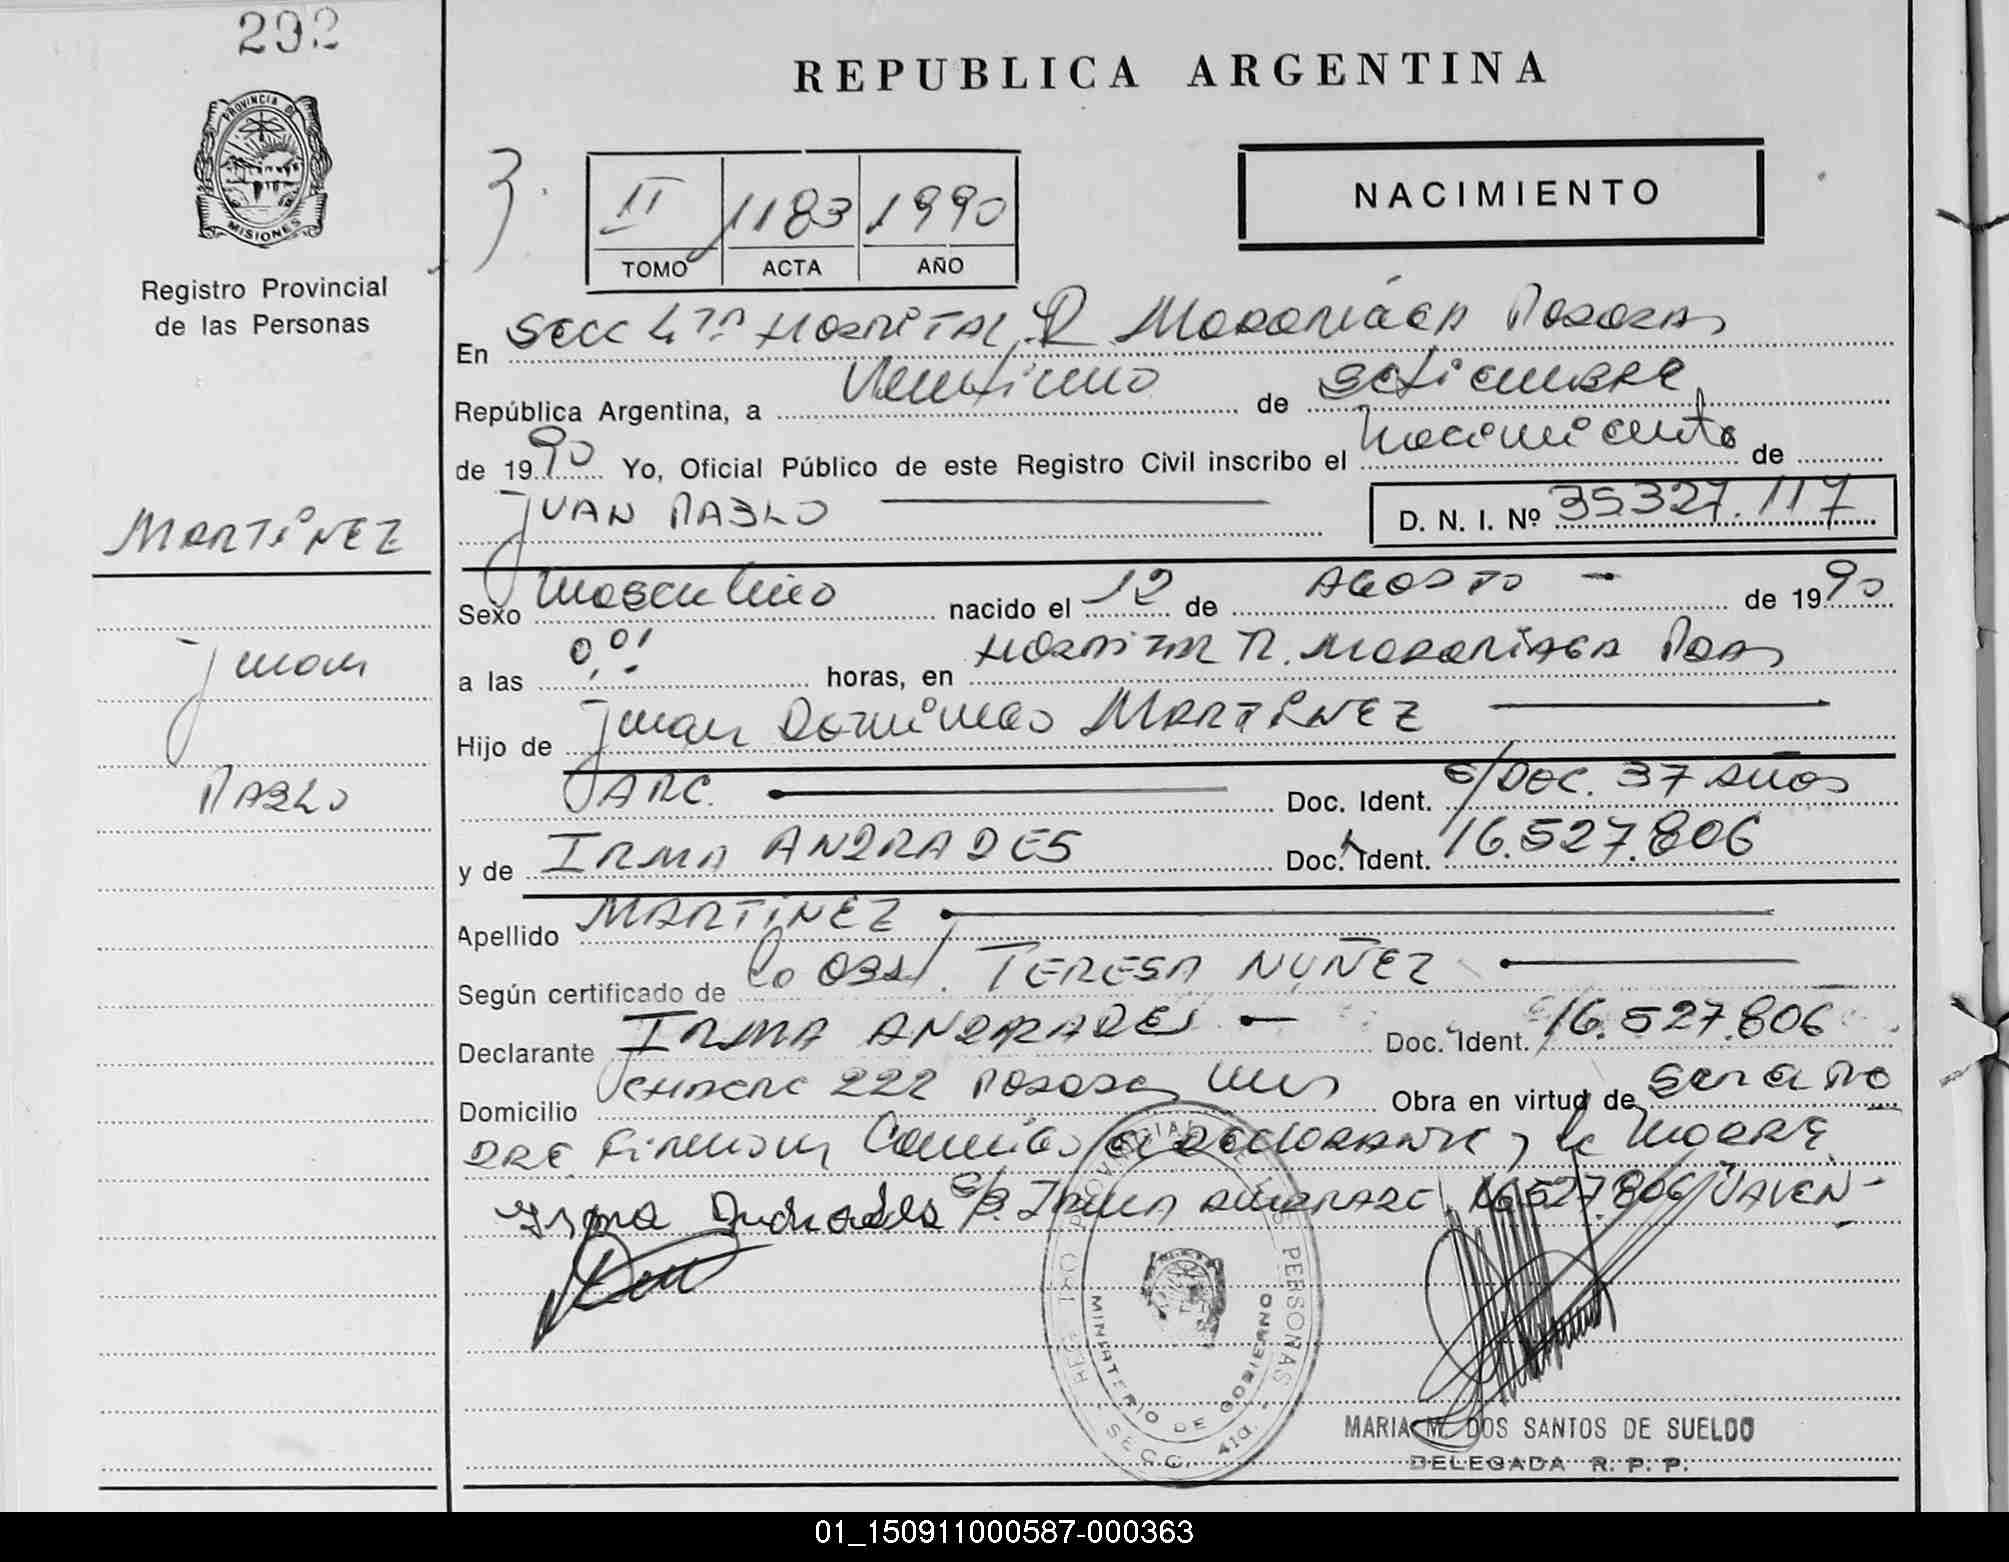 292
REPUBLICA ARGENTINA
PROVINCIA DE
MISIONES
Registro Provincial
de las Personas
II 1183 1990
TOMO ACTA AÑO
NACIMIENTO
En SECC 4ta HOSPITAL R. MADARIAGA POSADAS
República Argentina, a Veintiuno de Setiembre
de 1990 Yo, Oficial Público de este Registro Civil inscribo el Nacimiento de
JUAN PABLO D. N. I. Nº 35.327.117
MARTINEZ
Juan
PABLO
Sexo Masculino nacido el 12 de AGOSTO de 1990
a las 0,01 horas, en HOSPITAL R. MADARIAGA Pdas
Hijo de Juan Domingo MARTINEZ
ARC. Doc. Ident. S/DOC. 37 AÑOS
y de IRMA ANDRADES Doc. Ident. 16.527.806
Apellido MARTINEZ
Según certificado de la OBST. TERESA NUÑEZ
Declarante IRMA ANDRADES Doc. Ident. 16.527.806
Domicilio 222 POSADAS Mns Obra en virtud de ser la
DRE firman Conmigo la DECLARANTE y la MADRE
Irma Andrades IRMA ANDRADE 16.527.806 VALEN-
REGISTRO PROVINCIAL DE LAS PERSONAS
MINISTERIO DE GOBIERNO
SECC. 4ta.
MARIA M. DOS SANTOS DE SUELDO
DELEGADA R. P. P.
01_150911000587-000363